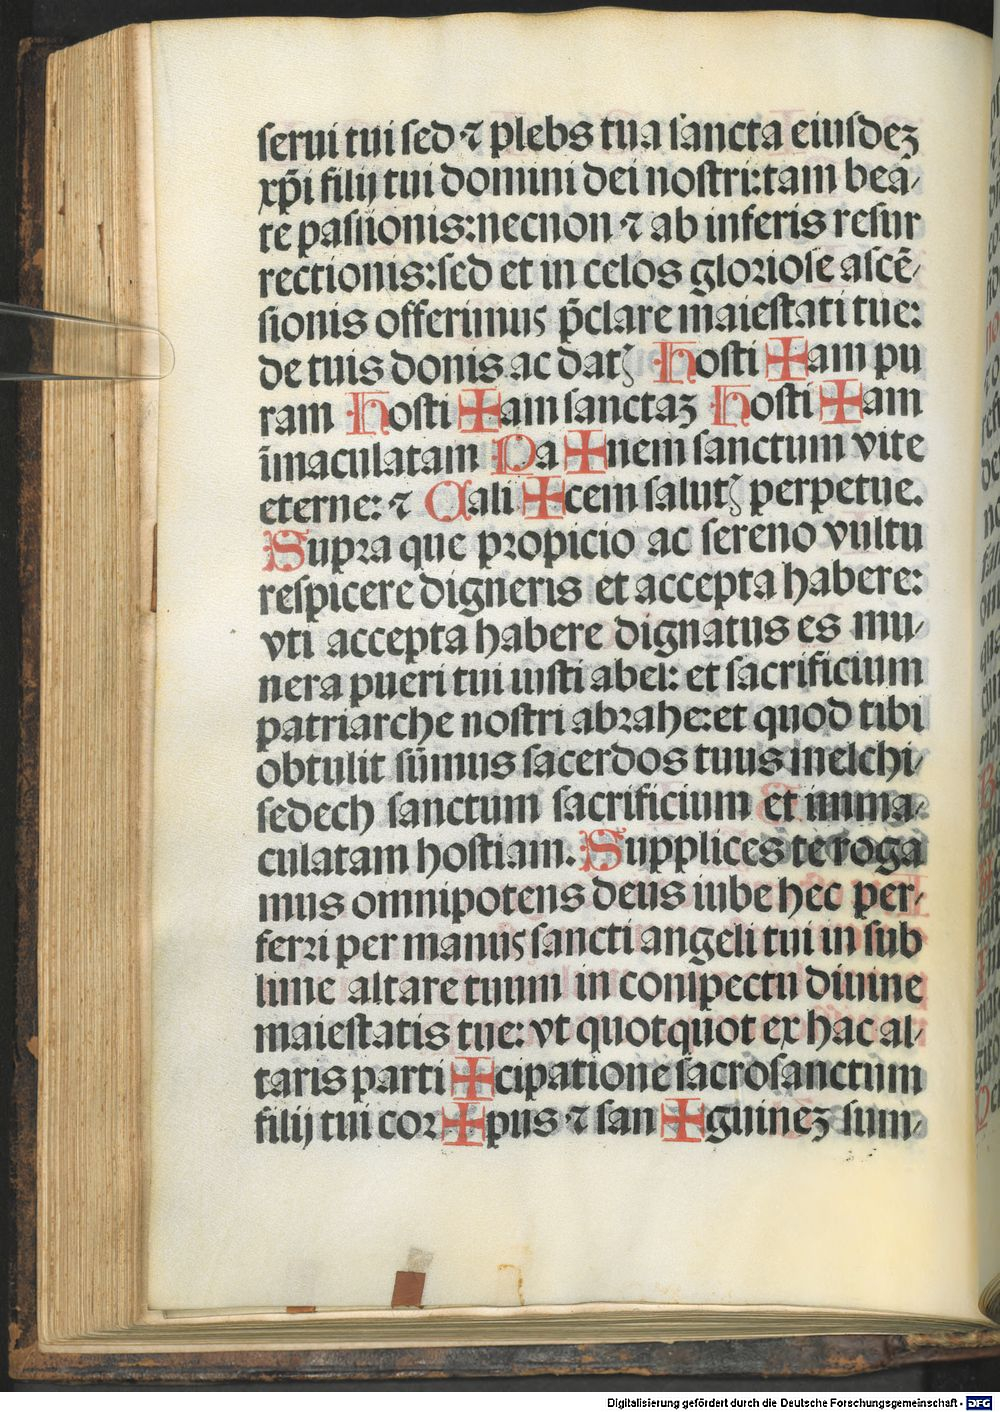 serui tui sed ⁊ plebs tua sancta eiusdeꝫ
xp̄i filij tui domini dei nostri: tam bea-
te passionis: necnon ⁊ ab inferis resur
rectionis: sed et in celos gloriose ascē-
sionis offerimus p̄clare maiestati tue:
de tuis donis ac datꝭ Hosti ✠ am pu
ram Hosti ✠ am sanctaꝫ Hosti ✠ am
īmaculatam Pa ✠ nem sanctum vite
eterne: ⁊ Cali ✠ cem salutꝭ perpetue.
Supra que propicio ac sereno vultu
respicere digneris et accepta habere:
vti accepta habere dignatus es mu-
nera pueri tui iusti abel: et sacrificium
patriarche nostri abrahe: et quod tibi
obtulit sūmus sacerdos tuus melchi-
sedech sanctum sacrificium et imma-
culatam hostiam. Supplices te roga
mus omnipotens deus iube hec per-
ferri per manus sancti angeli tui in sub
lime altare tuum in conspectu diuine
maiestatis tue: vt quotquot ex hac al-
taris parti ✠ cipatione sacrosanctum
filij tui cor ✠ pus ⁊ san ✠ guineꝫ sum-
Digitalisierung gefördert durch die Deutsche Forschungsgemeinschaft - DFG